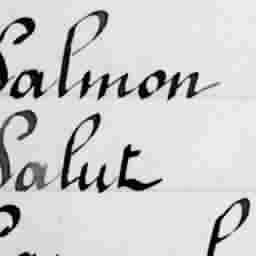 Salmon
Salut